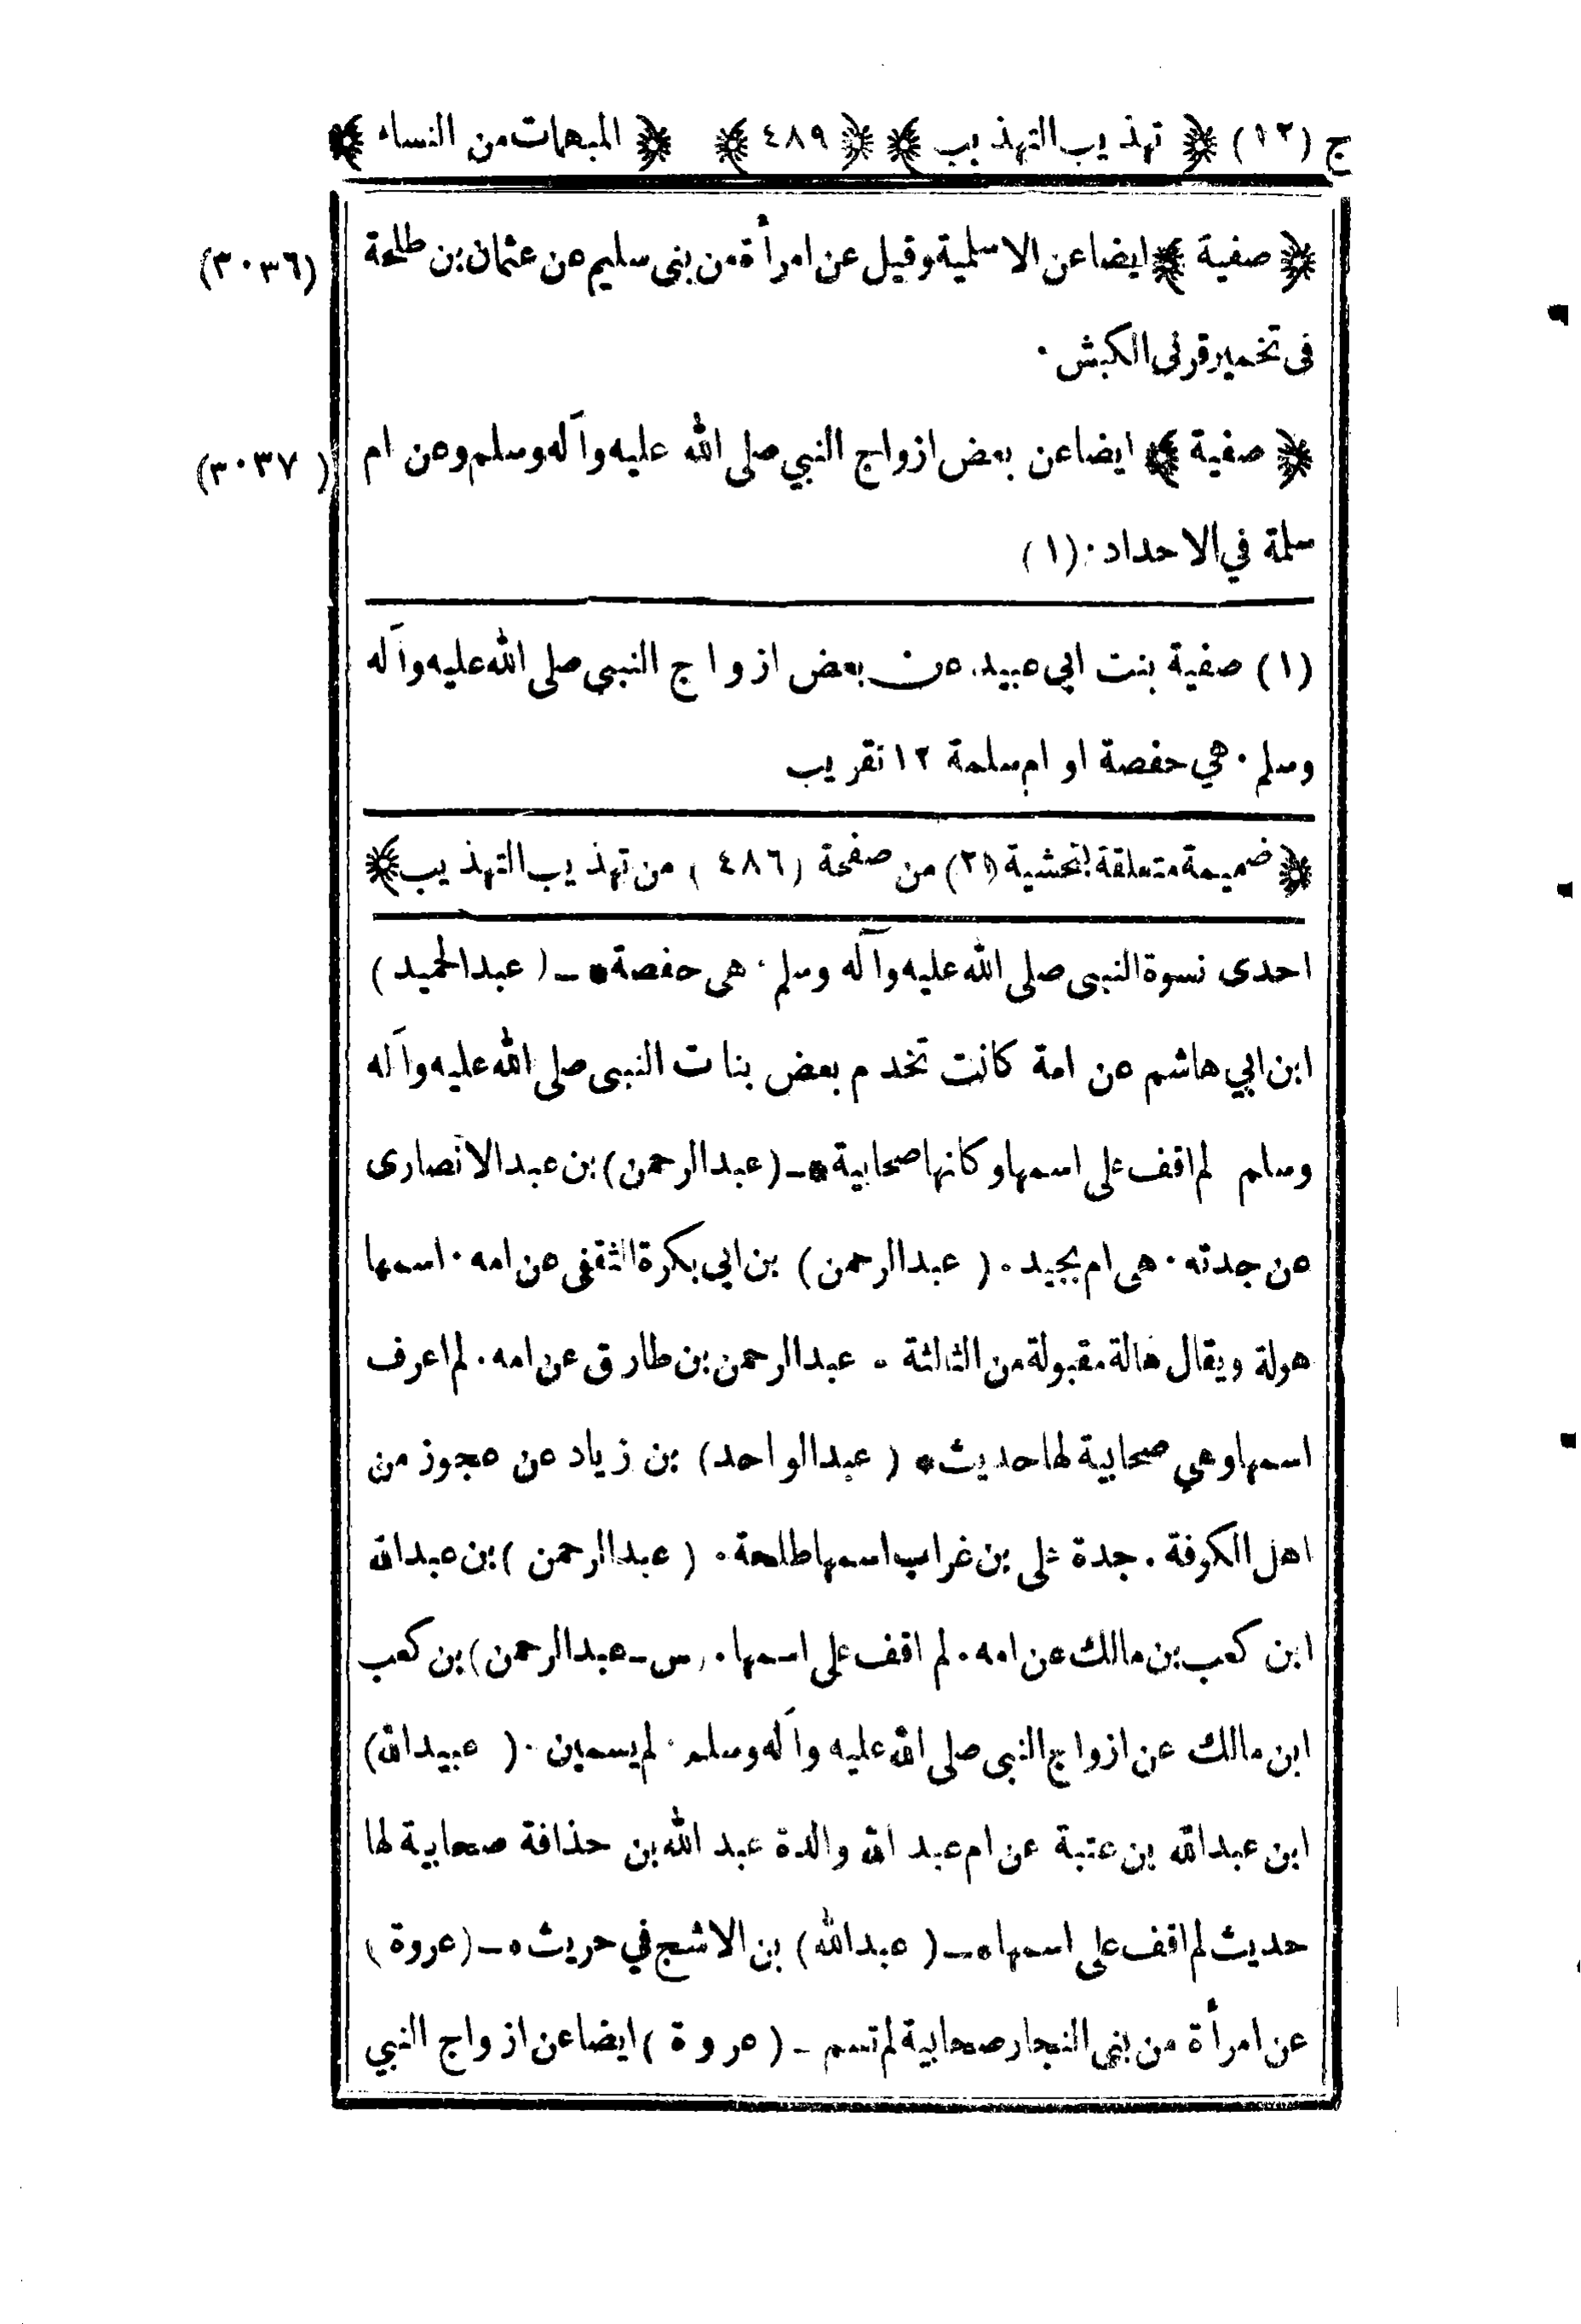 ج (١٢) ﴿ تهذيب التهذيب ﴾ ﴿ ٤٨٩ ﴾ ﴿ المبهمات من النساء ﴾
﴿ صفية ﴾ ايضا عن الاسلمية وقيل عن امرأة من بنى سليم عن عثمان بن طلحة (٣٠٣٦)
فى تخمير قرنى الكبش ·
﴿ صفية ﴾ ايضا عن بعض ازواج النبي صلى الله عليه وآله وسلم وعن ام (٣٠٣٧)
سلمة في الاحداد · (١)
(١) صفية بنت ابي عبيد. عن بعض ازواج النبي صلى الله عليه وآله
وسلم · هي حفصة او ام سلمة ١٢ تقريب
﴿ ضميمة متعلقة بتحشية (٢) من صفحة (٤٨٦) من تهذيب التهذيب ﴾
احدى نسوة النبي صلى الله عليه وآله وسلم · هى حفصة * ـ (عبد الحميد)
ابن ابي هاشم عن امة كانت تخدم بعض بنات النبي صلى الله عليه وآله
وسلم لم اقف على اسمها وكانها صحابية * ـ (عبد الرحمن) بن عبد الانصارى
عن جدته · هى ام بجيد . (عبد الرحمن) بن ابي بكرة الثقفى عن امه · اسمها
هولة ويقال هالة مقبولة من الثالثة . عبد الرحمن بن طارق عن امه . لم اعرف
اسمها وهي صحابية لها حديث * (عبد الواحد) بن زياد عن عجوز من
اهل الكوفة . جدة على بن غراب اسمها طلحة . (عبد الرحمن) بن عبد الله
ابن كعب بن مالك عن امه . لم اقف على اسمها . (س ـ عبد الرحمن) بن كعب
ابن مالك عن ازواج النبى صلى الله عليه وآله وسلم · لم يسمين . (عبيد الله)
ابن عبد الله بن عتبة عن ام عبد الله والدة عبد الله بن حذافة صحابية لها
حديث لم اقف على اسمها * ـ (عبد الله) بن الاشج في حريث * ـ (عروة)
عن امرأة من بنى النجار صحابية لم تسم ـ (عروة) ايضا عن ازواج النبي